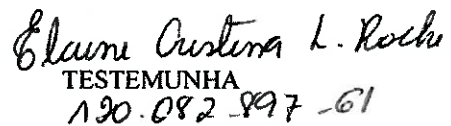 Elaine Cristina L. Rocha
TESTEMUNHA
120.082.897-61